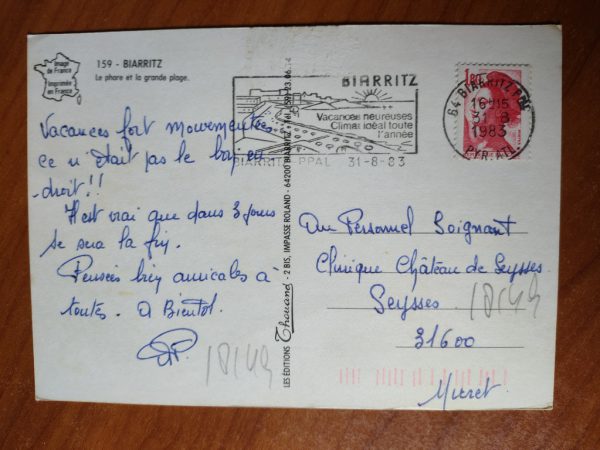 Image
de France
Imprimée
en France
159 - BIARRITZ
Le phare et la grande plage.
Vacances fort mouvementées
ce n'était pas le bon
droit!!
Il est vrai que dans 3 jours
se sera la fin.
Pensées bien amicales à
toutes. A Bientôt.
LES ÉDITIONS Thouand - 2 BIS, IMPASSE ROLAND - 64200 BIARRITZ - Tél. (59) 23.06
BIARRITZ
Vacances heureuses
Climat idéal toute
l'année
BIARRITZ PPAL 31-8-83
1,80
64 BIARRITZ PPAL
16H15
31 8
1983
PYR. ATL.
Au Personnel Soignant
Clinique Château de Seysses
Seysses
31600
Muret